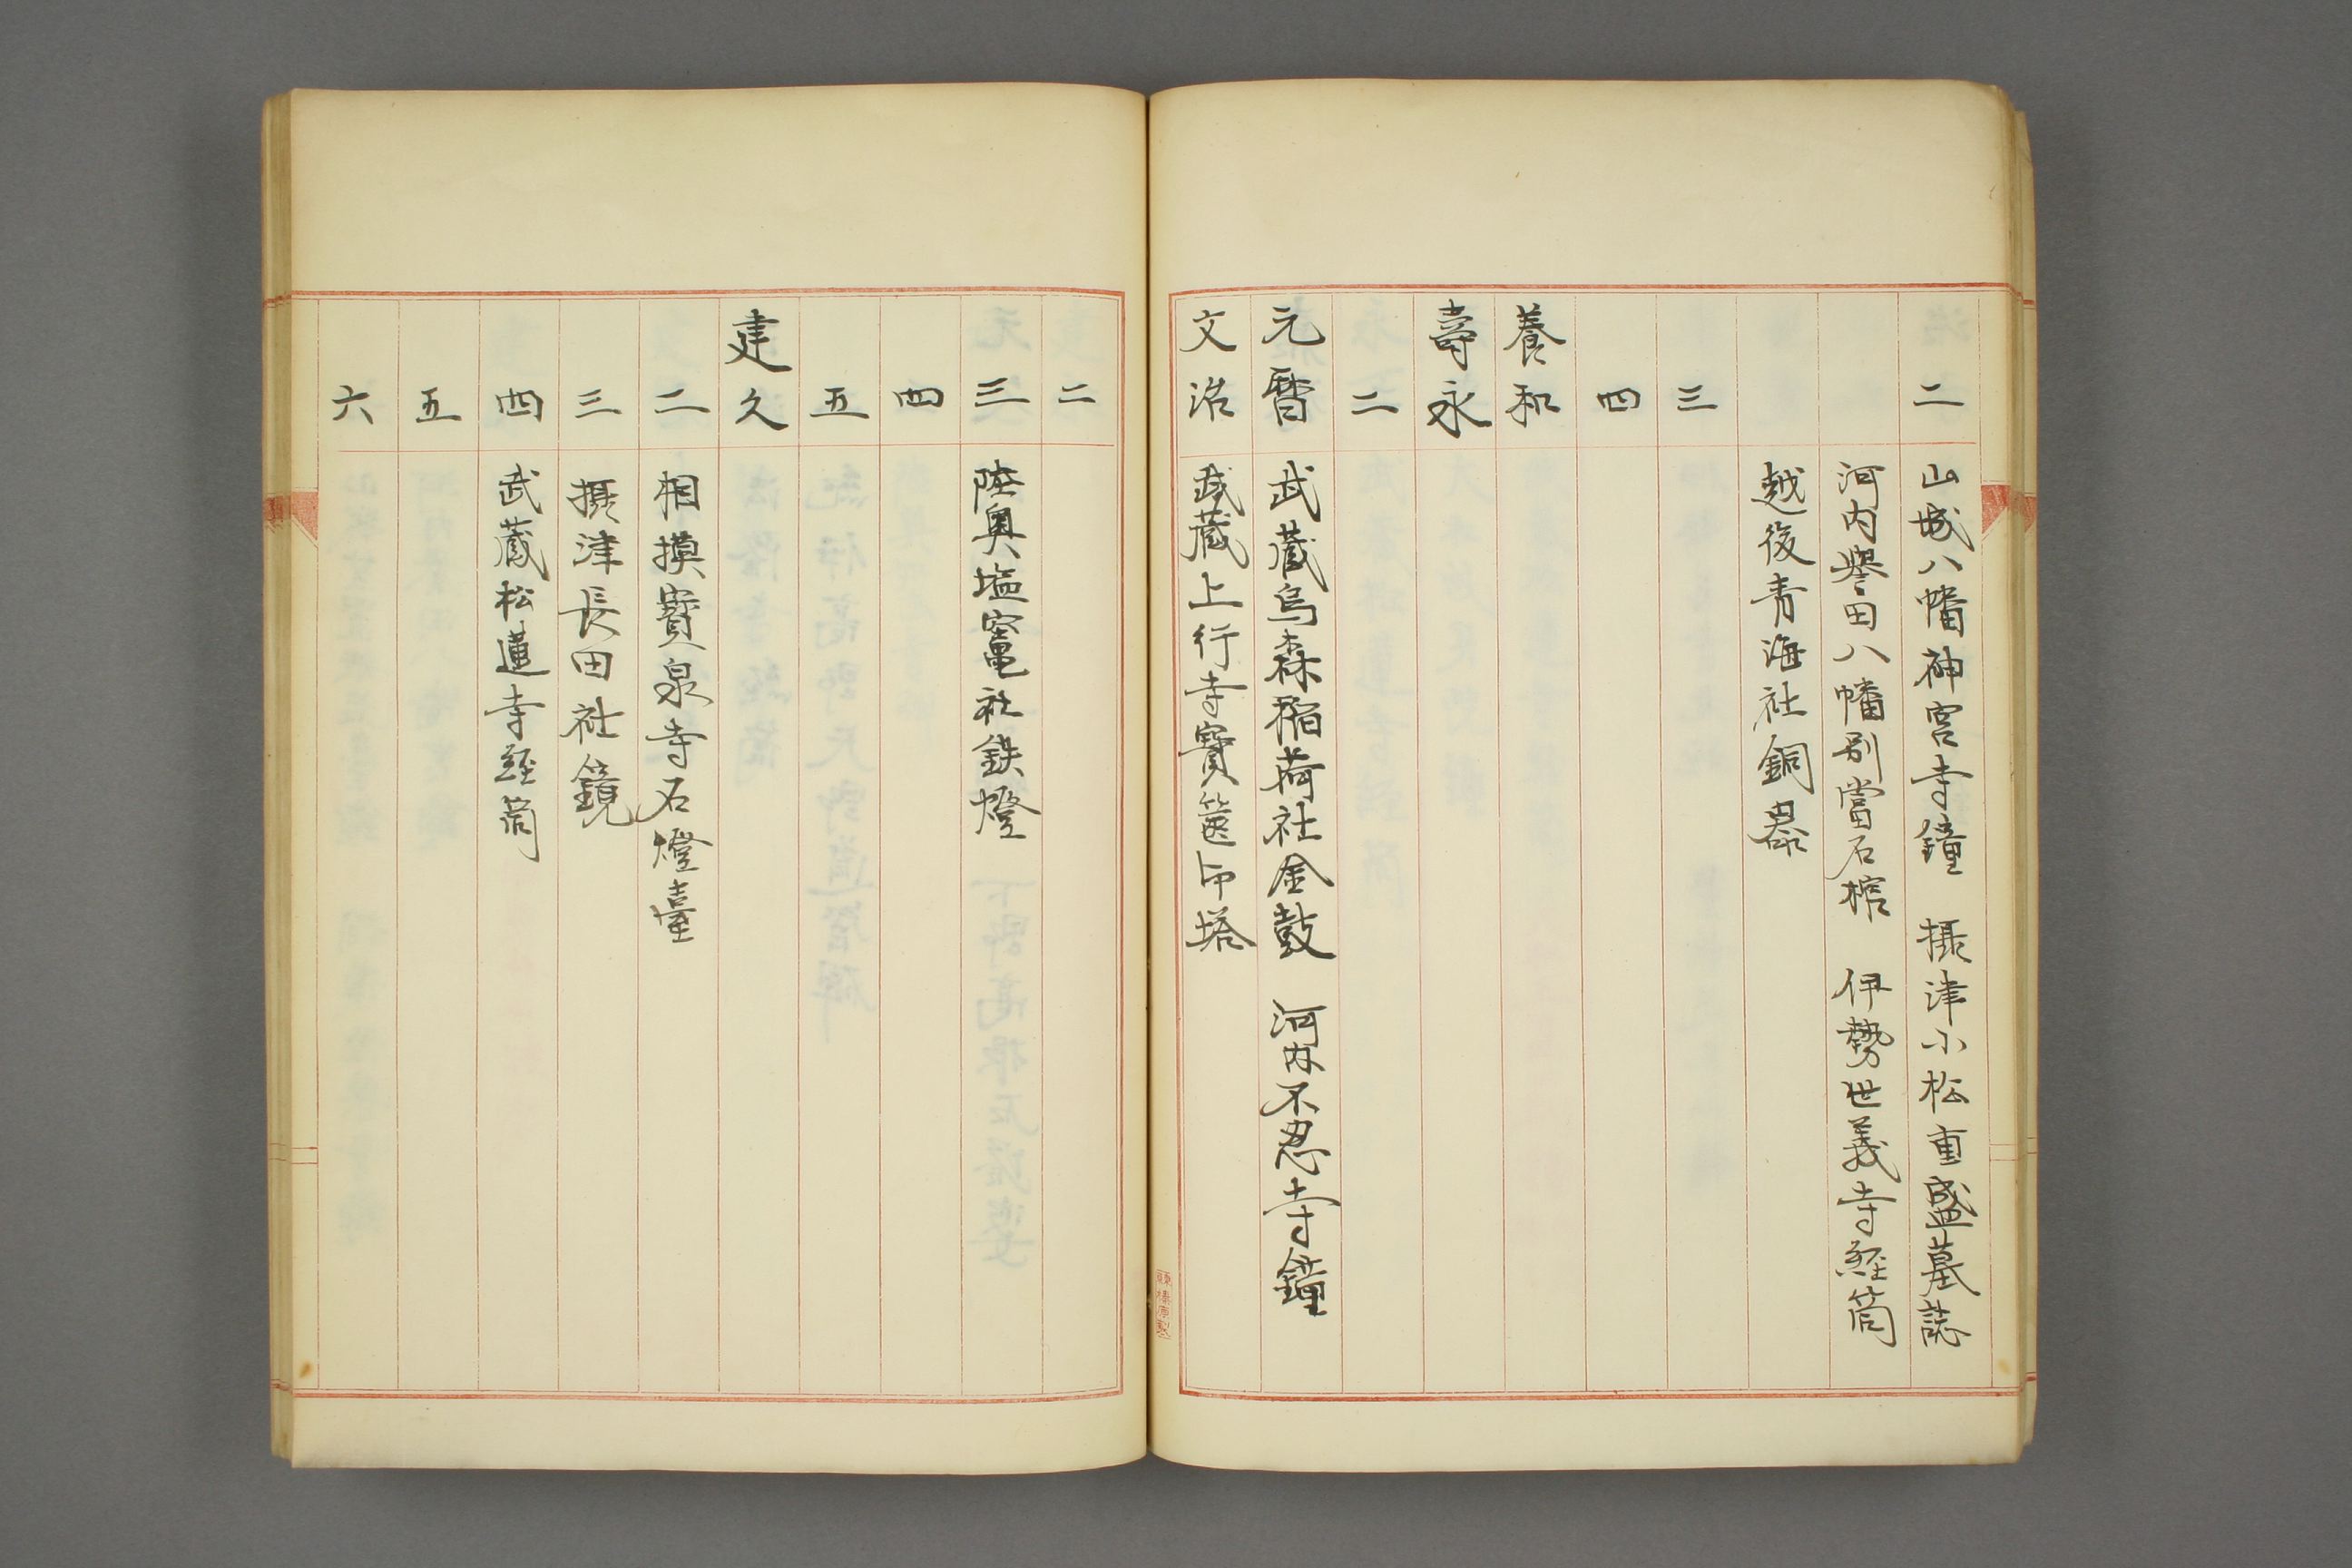 二 山城八幡神宮寺鐘 摂津小松重盛墓誌
河内譽田八幡別當石棺 伊勢世義寺經筒
越後青海社銅器
三
四
養和
壽永
二
元暦 武蔵烏森稲荷社金鼓 河内不忍寺鐘
文治 武蔵上行寺寶篋印塔
二
三 陸奥塩竈社鉄燈
四
五
建久
二 相摸寳泉寺石燈臺
三 摂津長田社鏡
四 武蔵松蓮寺經筒
五
六